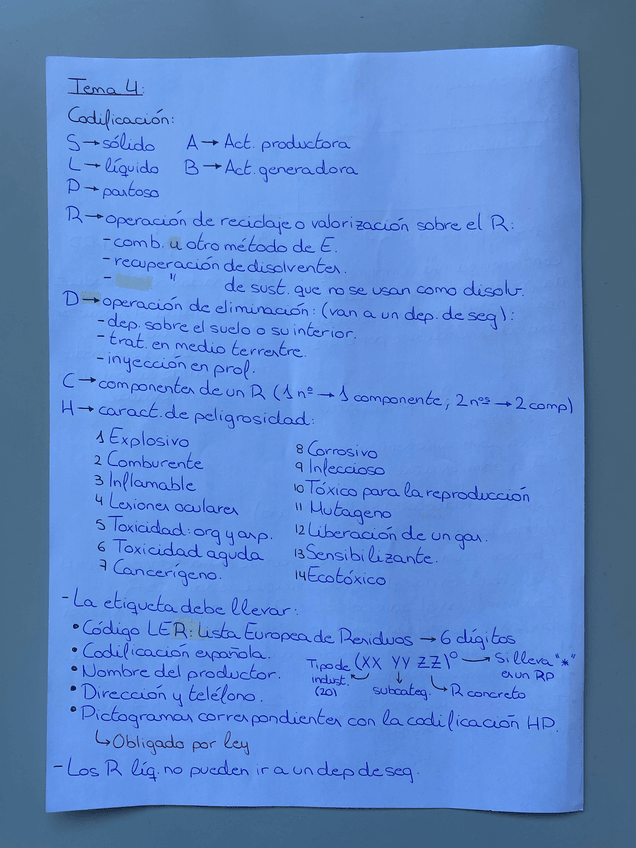 Tema 4:
Codificación:
S → sólido A → Act. productora
L → líquido B → Act. generadora
P → pastoso
R → operación de reciclaje o valorización sobre el R:
- comb. u otro método de E.
- recuperación de disolventes.
- " de sust. que no se usan como disolv.
D → operación de eliminación: (van a un dep. de seg):
- dep. sobre el suelo o su interior.
- trat. en medio terrestre.
- inyección en prof.
C → componentes de un R (1 nº → 1 componente, 2 nos → 2 comp)
H → caract. de peligrosidad:
1 Explosivo 8 Corrosivo
2 Comburente 9 Infeccioso
3 Inflamable 10 Tóxico para la reproducción
4 Lesiones oculares 11 Mutageno
5 Toxicidad: org y asp. 12 Liberación de un gas.
6 Toxicidad aguda 13 Sensibilizante.
7 Cancerígeno. 14 Ecotóxico
- La etiqueta debe llevar:
• Código LER: Lista Europea de Residuos → 6 dígitos
• Codificación española. Tipo de (XX YY ZZ)⁰ → Si lleva "*"
• Nombre del productor. indust. (20) subcateg. R concreto es un RP
• Dirección y teléfono.
• Pictogramas correspondientes con la codificación HP.
↳ Obligado por ley
- Los R líq. no pueden ir a un dep de seg.